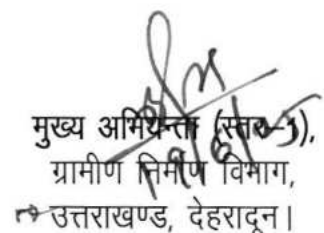 मुख्य अभियन्ता (स्तर-1),
ग्रामीण निर्माण विभाग,
उत्तराखण्ड, देहरादून।